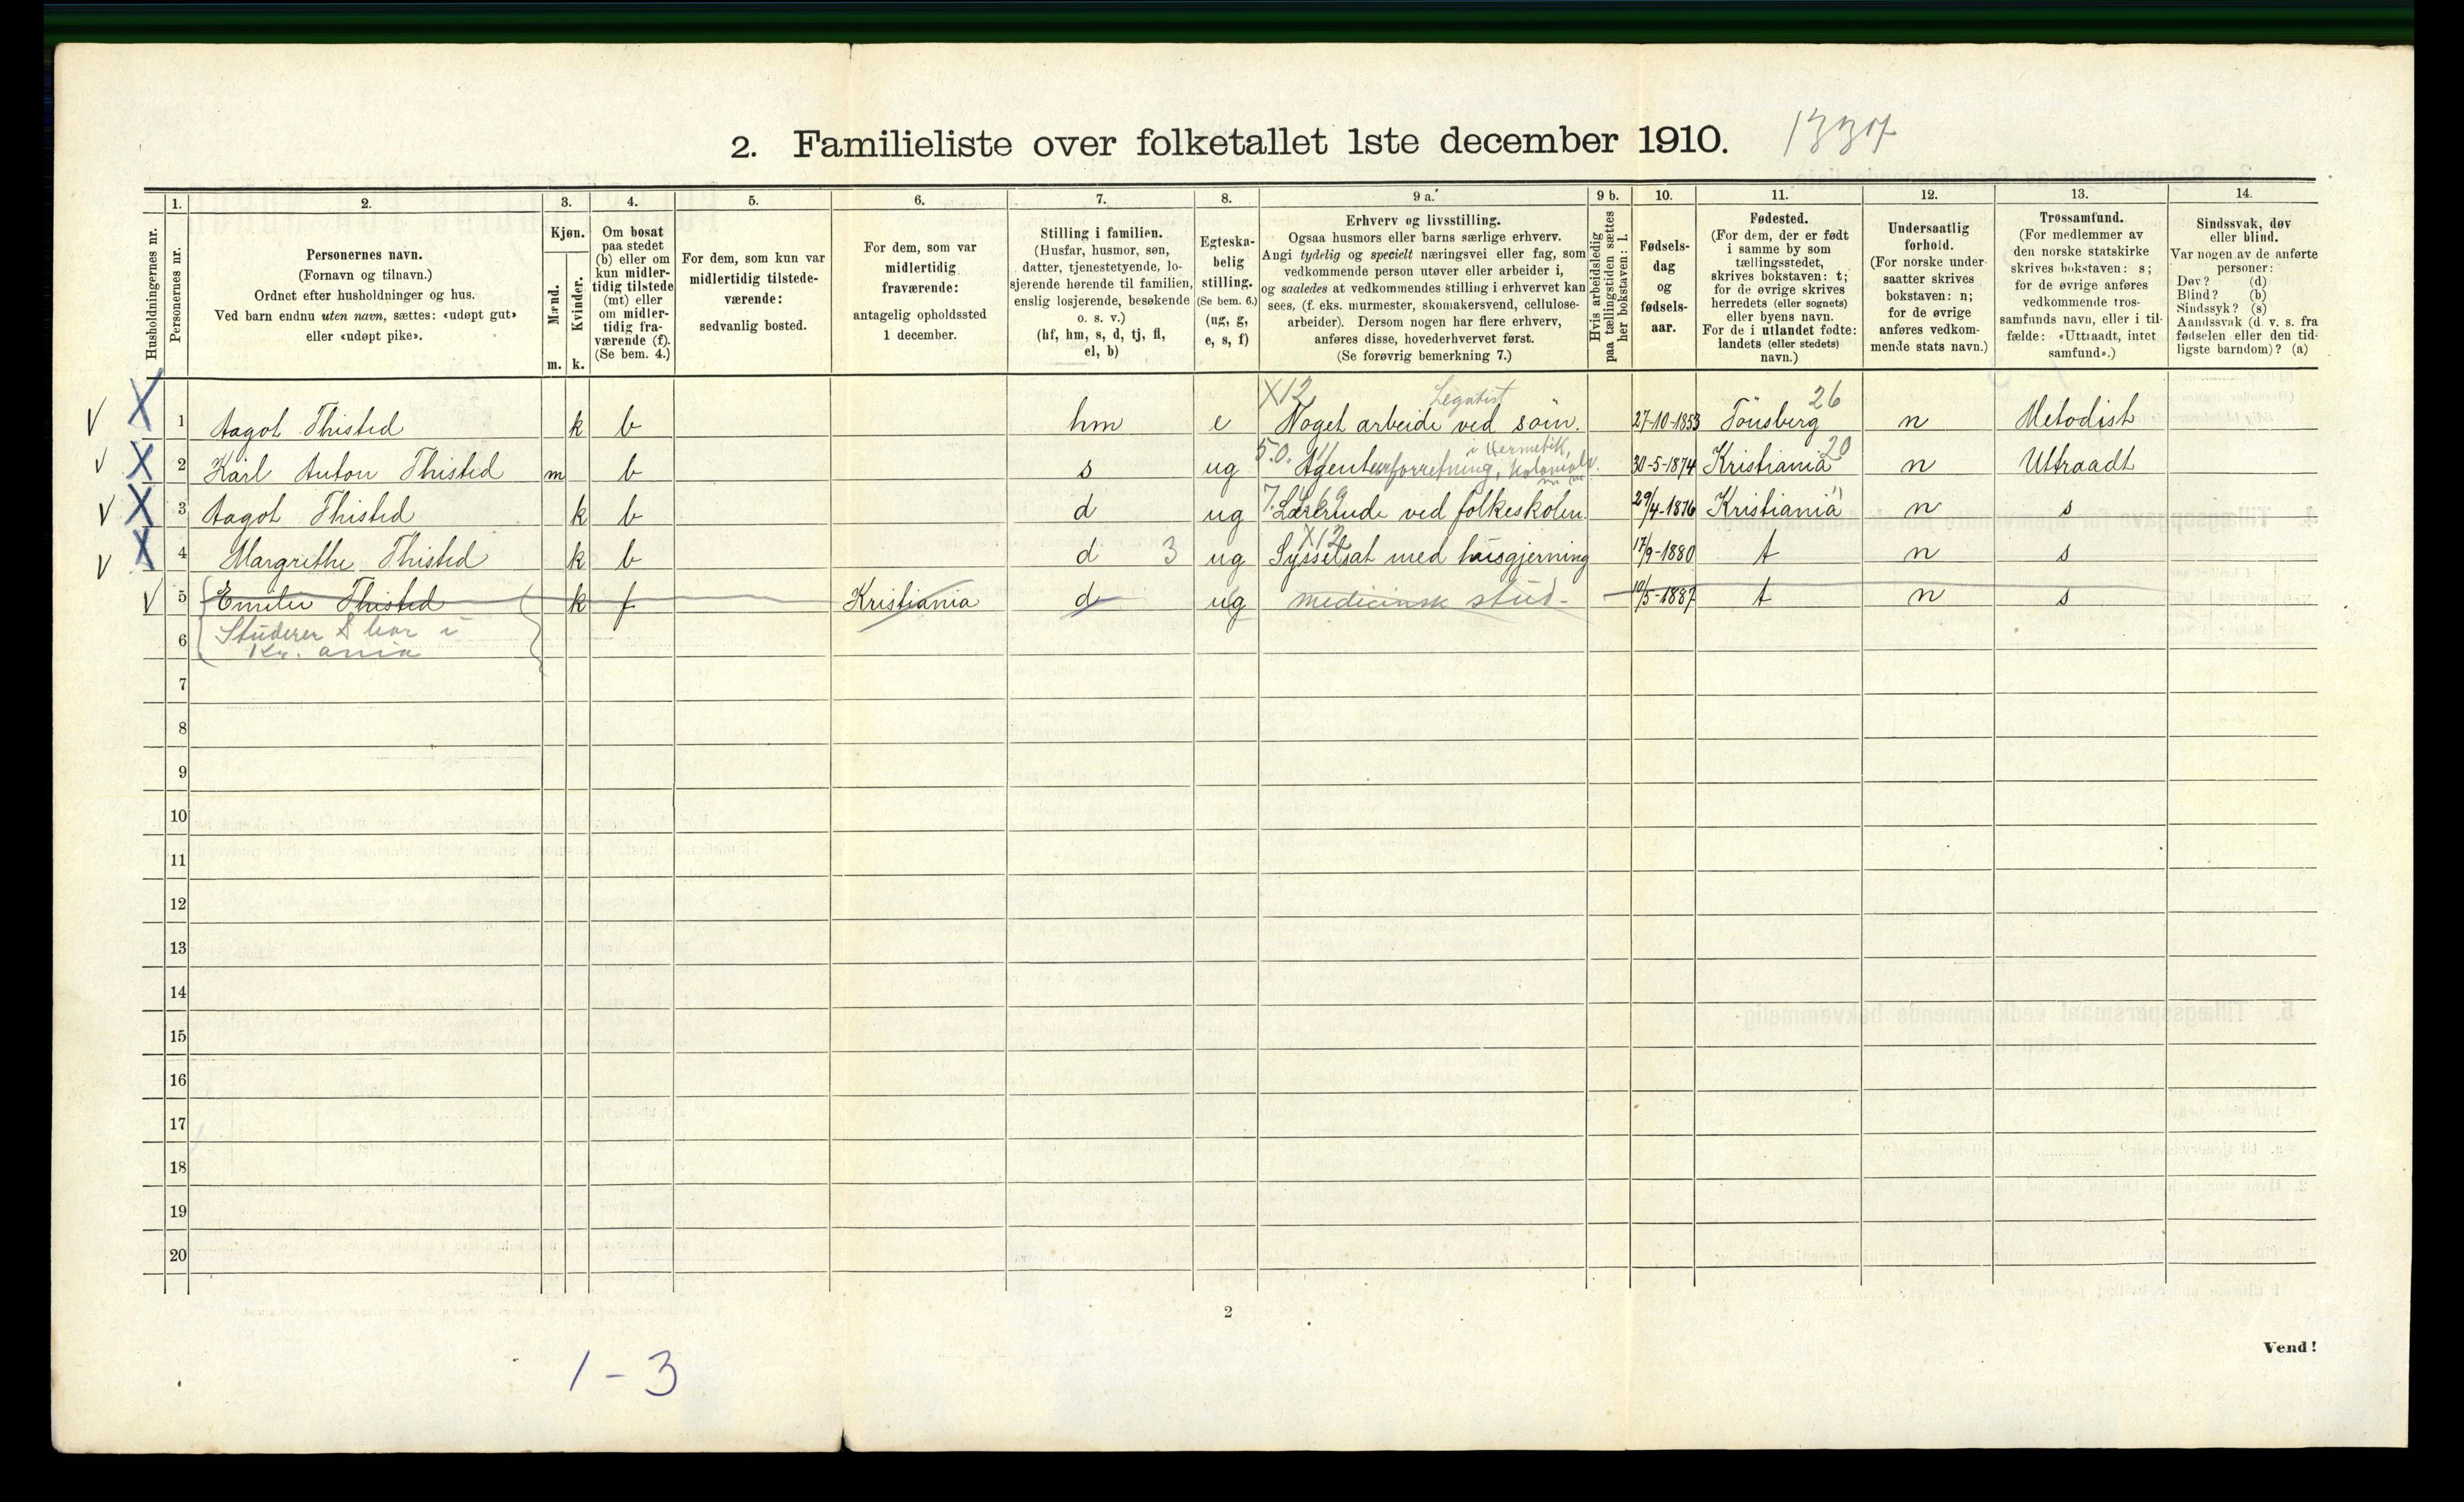 2. Familieliste over folketallet 1ste december 1910.
1. 2. 3. 4. 5. 6. 7. 8. 9 a. 9 b. 10. 11. 12. 13. 14.
Husholdningernes nr.
Personernes nr.
Personernes navn.
(Fornavn og tilnavn.)
Ordnet efter husholdninger og hus.
Ved barn endnu uten navn, sættes: «udøpt gut»
eller «udøpt pike».
Kjøn.
Mænd.
m.
Kvinder.
k.
Om bosat
paa stedet
(b) eller om
kun midler-
tidig tilstede
(mt) eller
om midler-
tidig fra-
værende (f).
(Se bem. 4.)
For dem, som kun var
midlertidig tilstede-
værende:
sedvanlig bosted.
For dem, som var
midlertidig
fraværende:
antagelig opholdssted
1 december.
Stilling i familien.
(Husfar, husmor, søn,
datter, tjenestetyende, lo-
sjerende hørende til familien,
enslig losjerende, besøkende
o. s. v.)
(hf, hm, s, d, tj, fl,
el, b)
Egteska-
belig
stilling.
(Se bem. 6.)
(ug, g,
e, s, f)
Erhverv og livsstilling.
Ogsaa husmors eller barns særlige erhverv.
Angi tydelig og specielt næringsvei eller fag, som
vedkommende person utøver eller arbeider i,
og saaledes at vedkommendes stilling i erhvervet kan
sees, (f. eks. murmester, skomakersvend, cellulose-
arbeider). Dersom nogen har flere erhverv,
anføres disse, hovederhvervet først.
(Se forøvrig bemerkning 7.)
Hvis arbeidsledig
paa tællingstiden sættes
her bokstaven: l.
Fødsels-
dag
og
fødsels-
aar.
Fødested.
(For dem, der er født
i samme by som
tællingsstedet,
skrives bokstaven: t;
for de øvrige skrives
herredets (eller sognets)
eller byens navn.
For de i utlandet fødte:
landets (eller stedets)
navn.)
Undersaatlig
forhold.
(For norske under-
saatter skrives
bokstaven: n;
for de øvrige
anføres vedkom-
mende stats navn.)
Trossamfund.
(For medlemmer av
den norske statskirke
skrives bokstaven: s;
for de øvrige anføres
vedkommende tros-
samfunds navn, eller i til-
fælde: «Uttraadt, intet
samfund».)
Sindssvak, døv
eller blind.
Var nogen av de anførte
personer:
Døv? (d)
Blind? (b)
Sindssyk? (s)
Aandssvak (d. v. s. fra
fødselen eller den tid-
ligste barndom)? (a)
X12 Legatist 26
V X 1 Aagot Thisted k b hm e Noget arbeide ved söm. 27-10-1853 Tönsberg n Metodist
5.0. i Hermetik, 20
V X 2 Karl Anton Thisted m b s ug Agenturforretning, Kolonialv. 30-5-1874 Kristiania n Uttraadt
V X 3 Aagot Thisted k b d ug Lærerinde ved folkeskolen. 29/4-1876 Kristiania n s
X12
V X 4 Margrethe Thisted k b d 3 ug Sysselsat med husgjerning 17/9-1880 t n s
V 5 Emilie Thisted k f Kristiania d ug medicinsk stud. 10/5-1887 t n s
6 Studerer & bor i
Kr. ania
7
8
9
10
11
12
13
14
15
16
17
18
19
20
2
Vend!
1 - 3